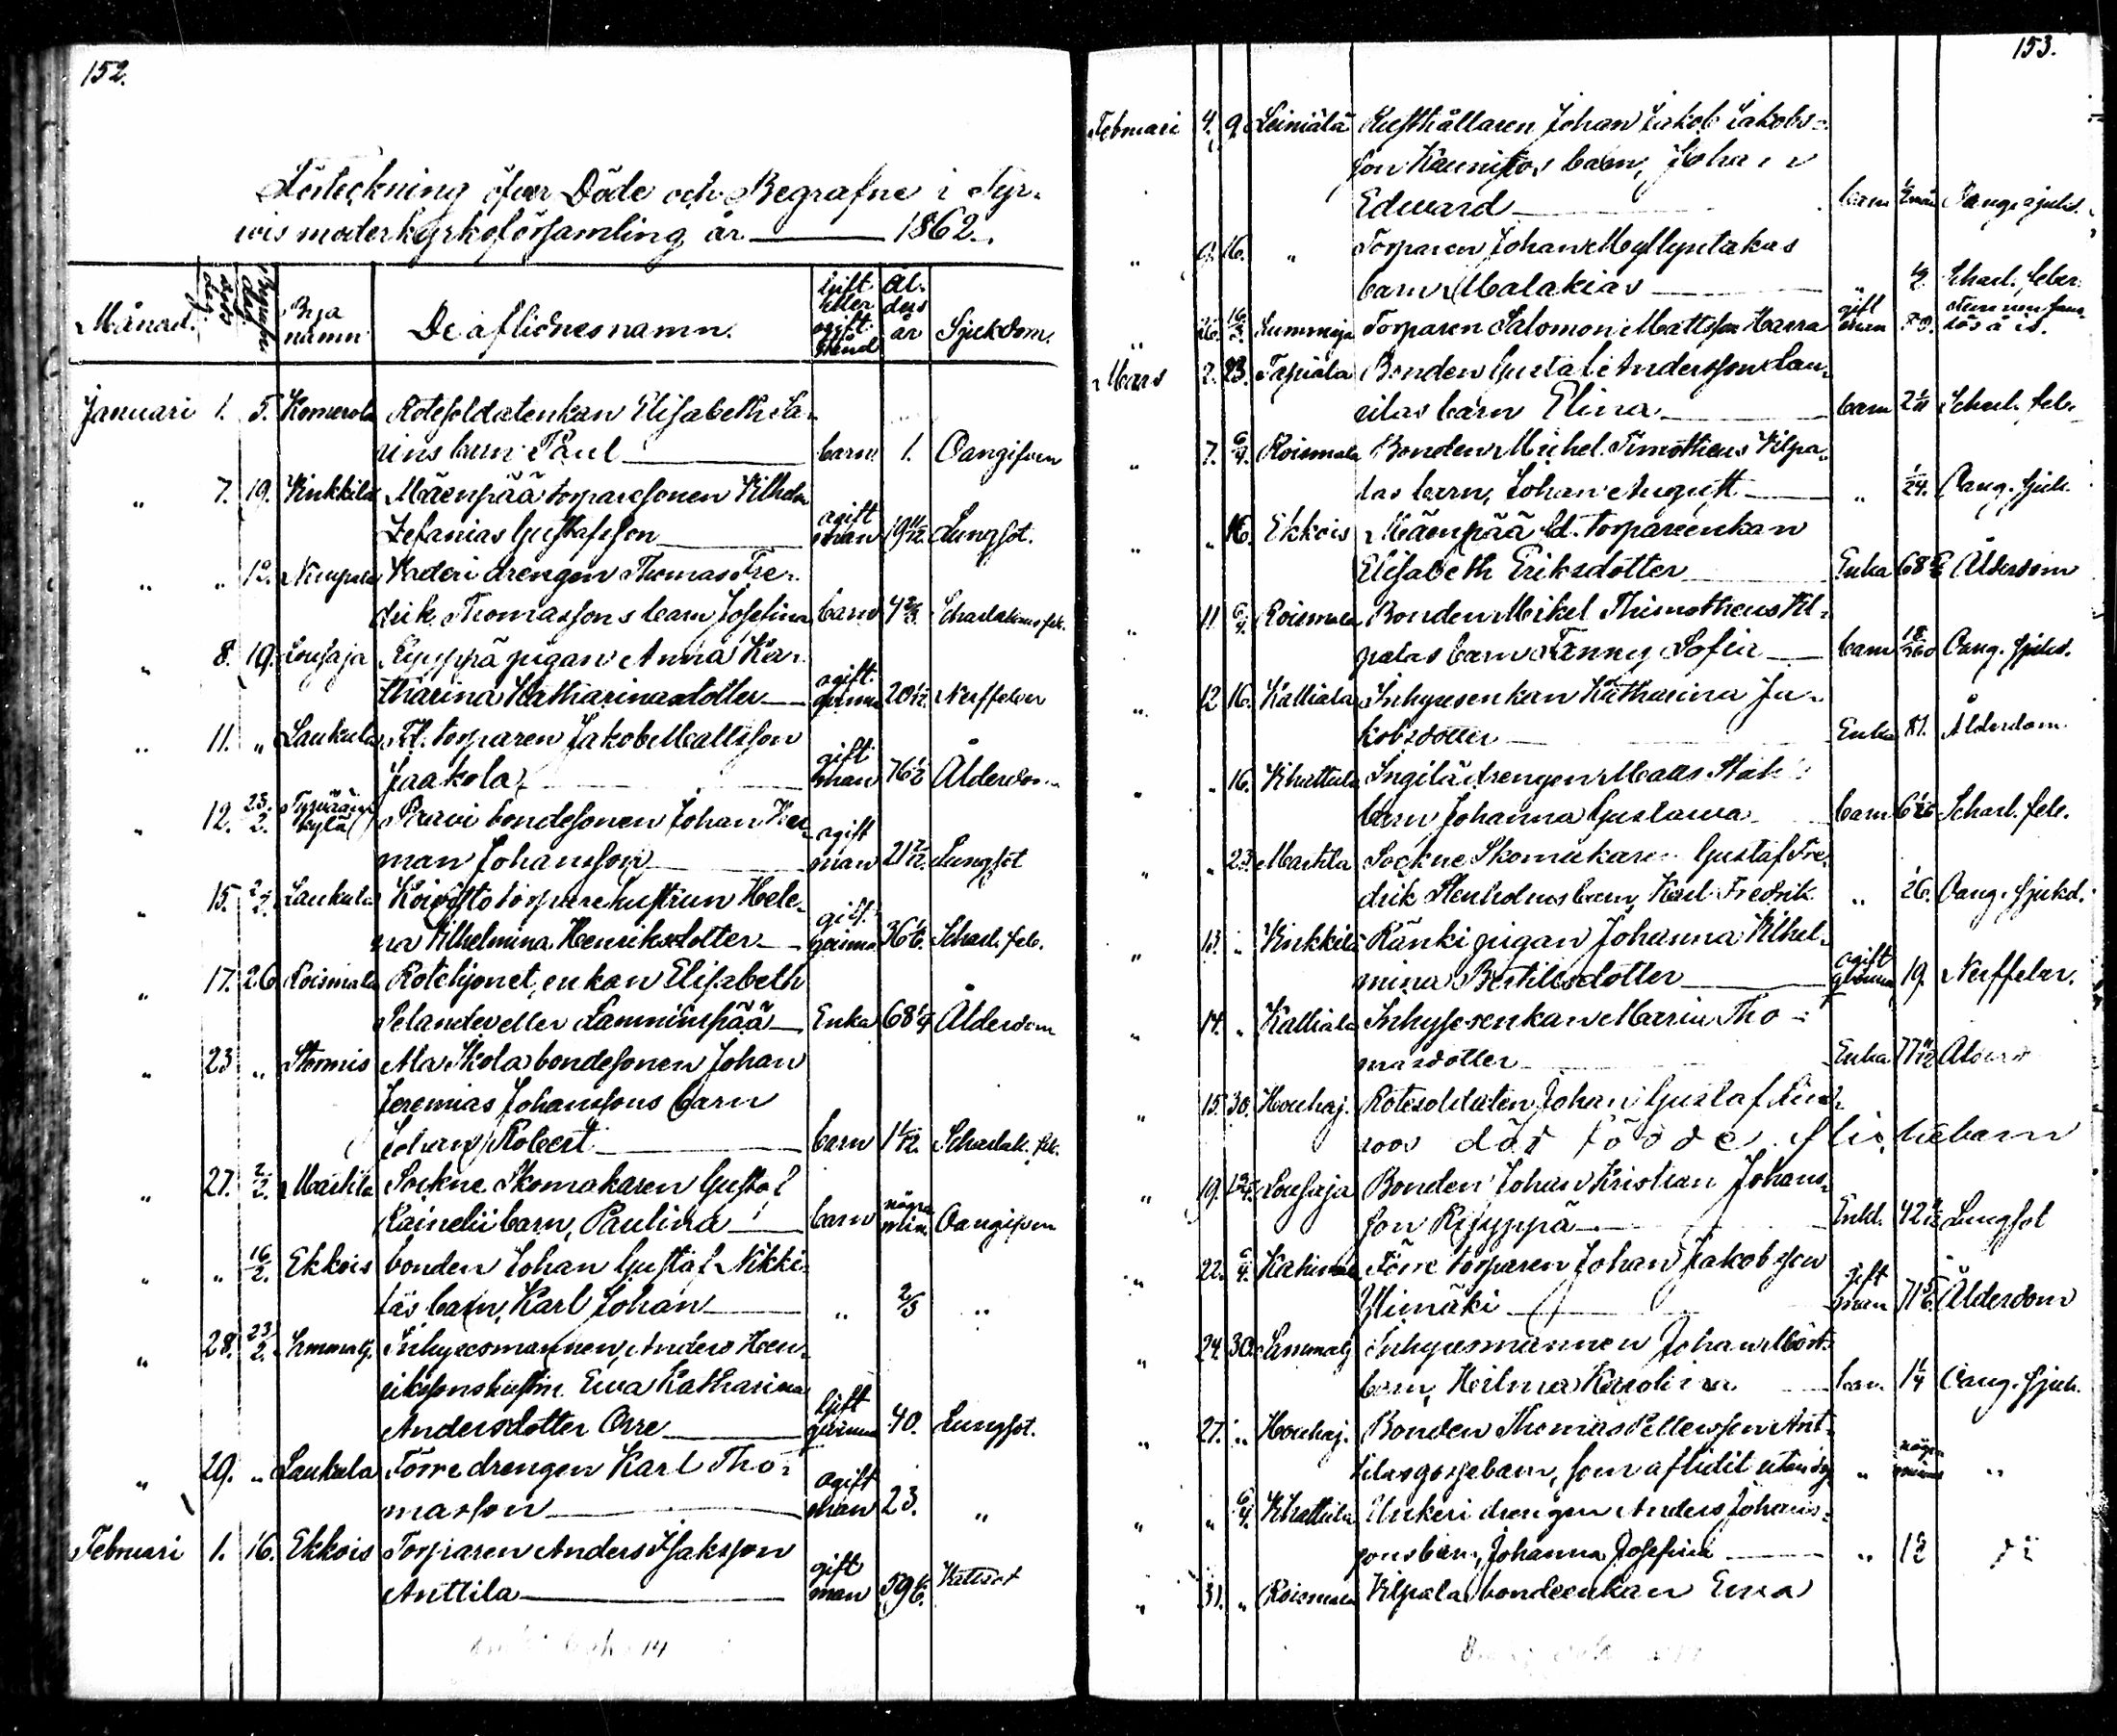 152.
Förteckning öfver Döde och Begrafne i Tyr-
vis moderkyrkoförsamling år — 1862.
Månad. Bya namn De aflidnes namn. Gift eller ogift stånd Ålder år Sjukdom.
Januari 1. 5. Komerola Rotesoldatenkan Elisabeth La-
rins barn Paul barn 1. Oangifven
" 7. 19. Kinkkilä Mäenpää torparesonen Vilhelm
Zefanias Gustafsson ogift man 19 11/12. Lungsot.
" " 12. Nuupala Knaderi drengen Thomas Fre-
drik Thomassons barn Josefina barn 4 2/3. Scharlakansfeb.
" 8. 19. Lousaja Ryyppä pigan Anna Ka-
tharina Katharinadotter ogift qvinna 20 1/2. Nerffeber
" 11. " Laukula Fd. torparen Jakob Mattsson
Jaakola gift man 76 1/2 Ålderdom
" 12. 23/2. Tyrväänkylä Pravi bondesonen Johan Her-
man Johansson ogift man 21 7/12. Lungsot
" 15. 2/2. Laukula Koivisto torparehustrun Hele-
na Vilhelmina Henriksdotter gift qvinna 36 1/6. Scharl. feb.
" 17. 26 Roismala Rotehjonet, enkan Elisabeth
Pelander eller Lamminpää Enka 68 1/4 Ålderdom
" 23 " Stormis Ala Skola bondesonen Johan
Jeremias Johanssons barn
Johan Robert barn 1 1/12. Scharlak. feb.
" 27. 2/2. Marttila Sockne Skomakaren Gustaf
Kainelii barn, Paulina barn några min. Oangifven
" " 16/2. Ekkois bonden Johan Gustaf Nikki-
läs barn, Karl Johan " 2/3 "
" 28. 23/2. Lummaj. Inhysesmannen, Anders Hen-
rikssons hustru Ewa Katharina
Andersdotter Orre Gift qvinna 40. Lungsot.
" 29. " Laukula Törre drengen Karl Tho-
masson ogift man 23. "
Februari 1. 16. Ekkois Torparen Anders Isaksson
Anttila gift man 59 1/6. Kallsot
153.
Februari 4. 9. Leiniälä Rusthållaren Johan Jakob Jakobs-
son Kaunistos barn, Johan
Edward barn Oang. sjukd.
" 9. 16. " Torparen Johan Myllyntakas
barn Malakias Scharl. feber.
" 26. 16/3. Lummaja Torparen Salomon Mattsson Harra gift man
Mars 2. 23. Tapiola Bonden Gustaf Andersson Lau-
rilas barn Elina barn Scharl. feb.
" 7. 6/4. Roismala Bonden Michel Timotheus Kilpa-
las barn, Johan August " 1/24. Oang. sjuk.
" " 16. Ekkois Mäenpää fd. torpareenkan
Elisabeth Eriksdotter Enka Ålderdom
" 11. 6/4. Roismala Bonden Mikel Thimotheus Kil-
palas barn Fanny Sofia barn Oang. sjukd.
" 12 16. Kalliala Inhysesenkan Katharina Ja-
kobsdotter Enka 81. Ålderdom.
" " 16. Kihattula Ingilä drengen Matts
barn Johanna Gustawa barn Scharl. feb.
" " 23 Marttila Sockne Skomakaren Gustaf Fre-
drik Stenholms barn, Karl Fredrik " Oang. sjukd.
" 13. " Kinkkilä Ränki pigan Johanna Vilhel-
mina Bertilsdotter ogift qvinna 19. Nerffeber.
" 14. " Kalliala Inhysesenkan Maria Tho-
masdotter Enka 77
" 15. 30. Houhaj. Rotesoldaten Johan Gustaf Lind-
roos död födde flickebarn
" 19. Lousaja Bonden Johan Kristian Johans-
son Ryyppä Enkl. Lungsot
" 22. 6/4. Törre torparen Johan Jakobsson
Ylimäki gift man 71 5/6. Ålderdom
" 24. 30. Lummaj Inhysesmannen Johan
barn, Heilma Karolina barn 1 1/4 Oang. sjuk.
" 27. " Houhaj. Bonden Thomas Ant-
tilas gossebarn, som aflidit utan dop " några "
" " 6/4. Kihattula Unkeri drengen Anders Johans-
sons barn, Johanna Josefina "
" 31. " Roismala Kilpala bondeenkan Ewa